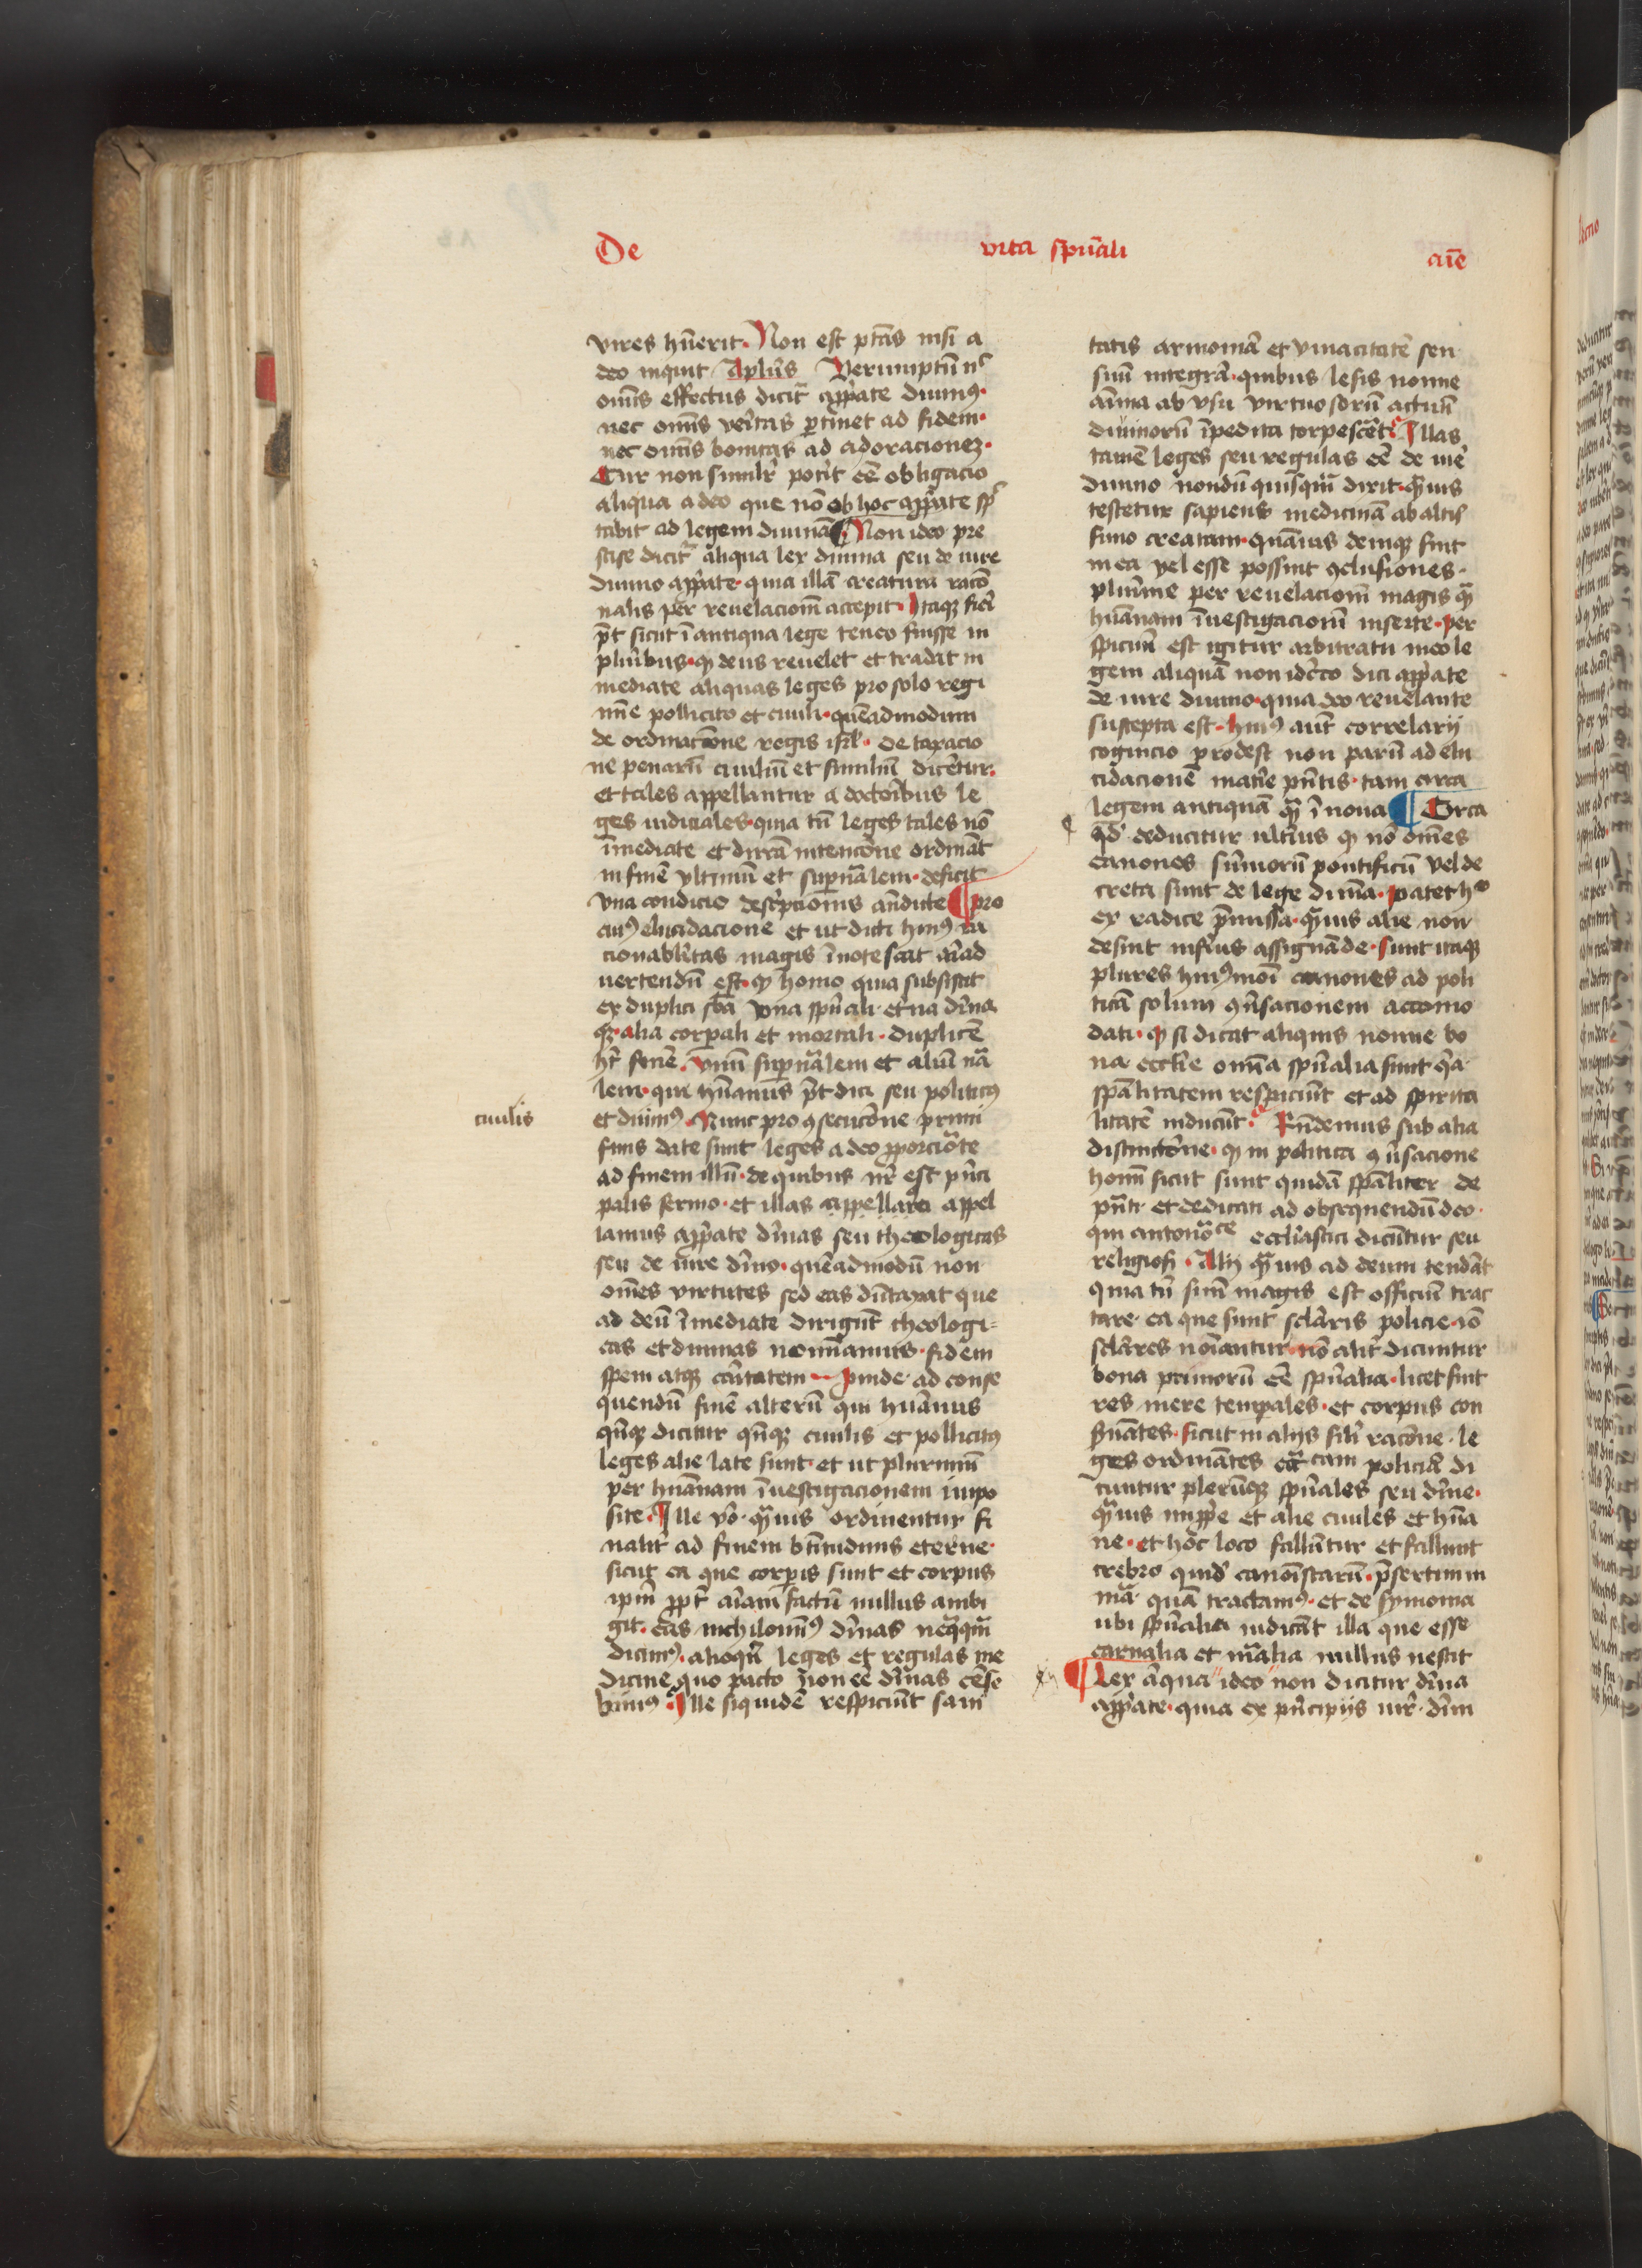 De vita spūali aīe
vires hūerit. Non est ptās nisi a
deo inquit Aplūs Verumptñ nᶜ
omīs effectus dicit᷑ appate diuinꝰ.
nec omīs veritas ptinet ad fidem.
nec omīs bonitas ad adoracionez.
Cur non similr̄ potīt eē obligacio
aliqua a deo que nō ob hoc appate spᶜ
tabit ad legem diuinā Non ideo pre
scise dicit᷑ aliqua lex diuina seu de iure
diuino appate. quia illā creatura racō
nalis per reuelacionē accepit. Itaqꝫ fieri
pōt sicut ī antiqua lege teneo fuisse in
pluribus. ꝙ deus reuelet et tradat in
mediate aliquas leges pro solo regi
mīe pollicito et ciuili. quēadmodum
de ordinacōne regis isrl̄. De taxacio
ne penarū ciuiliū et similiū dicetur.
et tales appellantur a doctoribus le
ges iudiciales. quia tn̄ leges tales nō
īmediate et dircā intencōne ordināt
in finē vltimū et supnālem. deficit
vna condicio descripcionis ān̄dicte ¶ pro
cuiꝰ elucidacione et ut dicti huiꝰ ra
cionabilitas magis īnotescat aīad
uertendū est. ꝙ homo quia subsistit
ex duplici sbā vna spūali et̄na diīna
qꝫ. alia corpali et mortali. duplicē
ht̄ finē. vnū supnālem et aliū nā
lem. qui hūanus pōt dici seu politicꝰ
ciuilis
et diuinꝰ. Nunc pro ꝯsecucōne primi
finis date sunt leges a deo pporcioāte
ad finem illū. de quibus nr̄ est princi
palis sermo. et illas appellare appel
lamus appate diīnas seu theologicas
seu de iure diīno. quēadmodū non
omēs virtutes sed eas dūtaxat que
ad deū īmediate dirigūt theologi=
cas et diuinas nominamus. fidem
spem atqꝫ caritatem. Proinde ad conse
quendū finē alterū qui hūanus
qn̄qꝫ dicitur qn̄qꝫ ciuilis et polliticꝰ
leges alie late sunt. et ut plurimū
per hūanam īuestigacionem impo
site. Ille vō. quāuis ordinentur fi
nalit̄ ad finem btītudinis eterne.
sicut ea que corpis sunt et corpus
ipm̄ ppt̄ aīam factū nullus ambi
git. eas nichilomīꝰ diīnas neqqm̄
dicimꝰ. alioqn̄ leges et regulas me
dicine quo pacto non eē diīnas cēse
bimꝰ Ille siquidē respiciūt sani
tatis armoniā et viuacitatē sen
suū integrā. quibus lesis nonne
anima ab vsu virtuosorū actuū
diuinorū īpedita torpescet. Illas
tamē leges seu regulas eē de iure
diuino nondū quisquā dixit. quāuis
testetur sapiens medicinā ab altis
simo creatam. quāuis deniqꝫ sint
in ea vel esse possint ꝯclusiones.
plurime per reuelacionē magis quā
hūanam īuestigacionē inserte. per
spicuū est igitur arbitratu meo le
gem aliquā non idcirco dici appate
de iure diuino. quia deo reuelante
suscepta est. huiꝰ aut̄ correlarij
cognicio prodest non parū ad elu
cidacionē materie pn̄tis. tam circa
legem antiquā quā ī noua ¶ Circa
qd̄ deducitur vlterius ꝙ nō omēs
canones sum̄orū pontificū vel de
creta sunt de lege diuina. patet hᵒ
ex radice premissa. quāuis alie non
desint inferius assignāde. sunt itaqꝫ
plures huiꝰmōi canones ad poli
ticā solum ꝯuersacionem accomo
dati. ꝙ si dicat aliquis nonne bo
na eccl̄ie omīa spūalia sunt quia
spālitatem respiciūt et ad spirita
litatē inducūt. Rn̄demus sub alia
distinctōne. ꝙ in politica ꝯuersacione
hoīm sicut sunt quidā spāliter de
putati et dedicati ad obsequendū deo.
qui antonoāᶜᵉ eccl̄iastici dicūtur seu
religiosi. Alij quāuis ad deum tendāt
quia tn̄ suū magis est officiū trac
tare. ea que sunt seclāris policie. iō
seclāres noīantur. nō alit̄ dicuntur
bona primorū eē spūalia. licet sint
res mere temporales. et corpus con
seruātes. sicut in alijs sil̄i racōne. le
ges ordinātes eccām policiā di
cuntur plerūqꝫ spūales seu diīne.
quāuis impprie et alie ciuiles et hūa
ne. et hoc loco fallūtur et fallunt
crebro quid canōistarū. presertim in
mā quā tractamꝰ. et de symonia
ubi spūalia iudicāt illa que esse
carnalia et māalia nullus nescit
¶ Lex aliqua ideo non dicitur diīna
appate. quia ex principijs iur̄. diīni